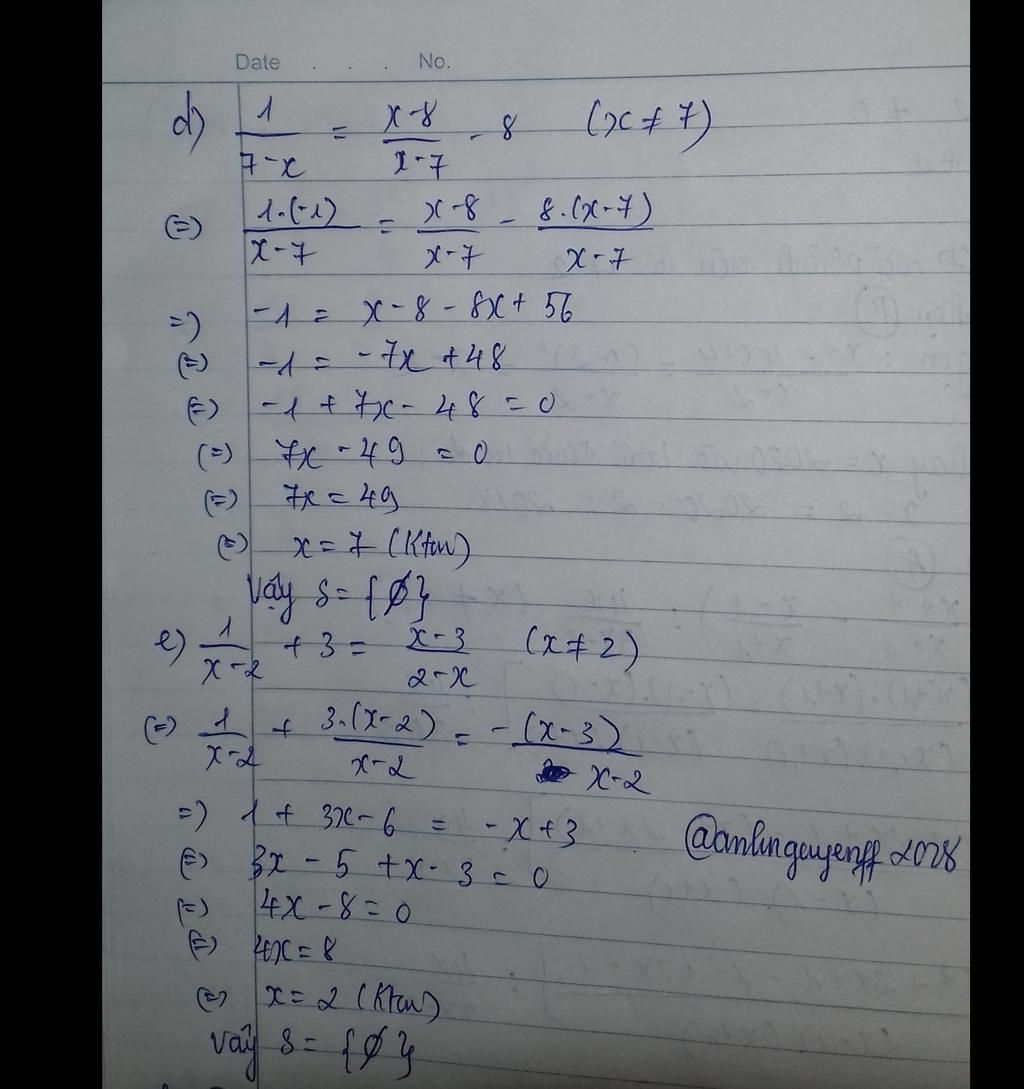 Date . . . No.
d) 1/(7-x) = (x-8)/(x-7) - 8 (x ≠ 7)
(=) 1.(-1)/(x-7) = (x-8)/(x-7) - 8.(x-7)/(x-7)
=) -1 = x-8-8x+56
(=) -1 = -7x+48
(=) -1+7x-48=0
(=) 7x-49=0
(=) 7x=49
(=) x=7 (Ktm)
Vậy S={∅}
e) 1/(x-2) + 3 = (x-3)/(2-x) (x ≠ 2)
(=) 1/(x-2) + 3.(x-2)/(x-2) = -(x-3)/(x-2)
=) 1+3x-6 = -x+3
(=) 3x-5+x-3=0
(=) 4x-8=0
(=) 4x=8
(=) x=2 (Ktm)
Vậy S={∅}